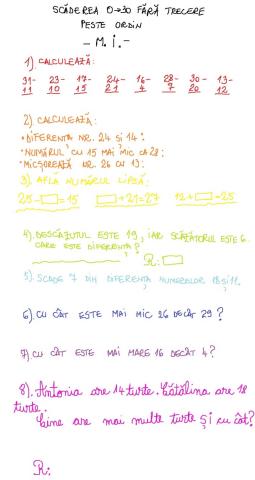 SCĂDEREA 0→30 FĂRĂ TRECERE
PESTE ORDIN
- M. I. -
1) CALCULEAZĂ:
31- 23- 17- 24- 16- 28- 30- 13-
11 10 15 21 4 7 20 12
2) CALCULEAZĂ:
• DIFERENȚA NR. 24 ȘI 14:
• NUMĂRUL CU 15 MAI MIC CA 28:
• MICȘOREAZĂ NR. 26 CU 13:
3) AFLĂ NUMĂRUL LIPSĂ:
25-□=15 □+21=27 12+□=25
4) DESCĂZUTUL ESTE 19, IAR SCĂZĂTORUL ESTE 6.
CARE ESTE DIFERENȚA?
R: □
5) SCADE 7 DIN DIFERENȚA NUMERELOR 18 ȘI 11.
6) CU CÂT ESTE MAI MIC 26 DECÂT 29?
7) CU CÂT ESTE MAI MARE 16 DECÂT 4?
8) Antonia are 14 turte. Cătălina are 18
turte.
Cine are mai multe turte ȘI cu cât?
R: